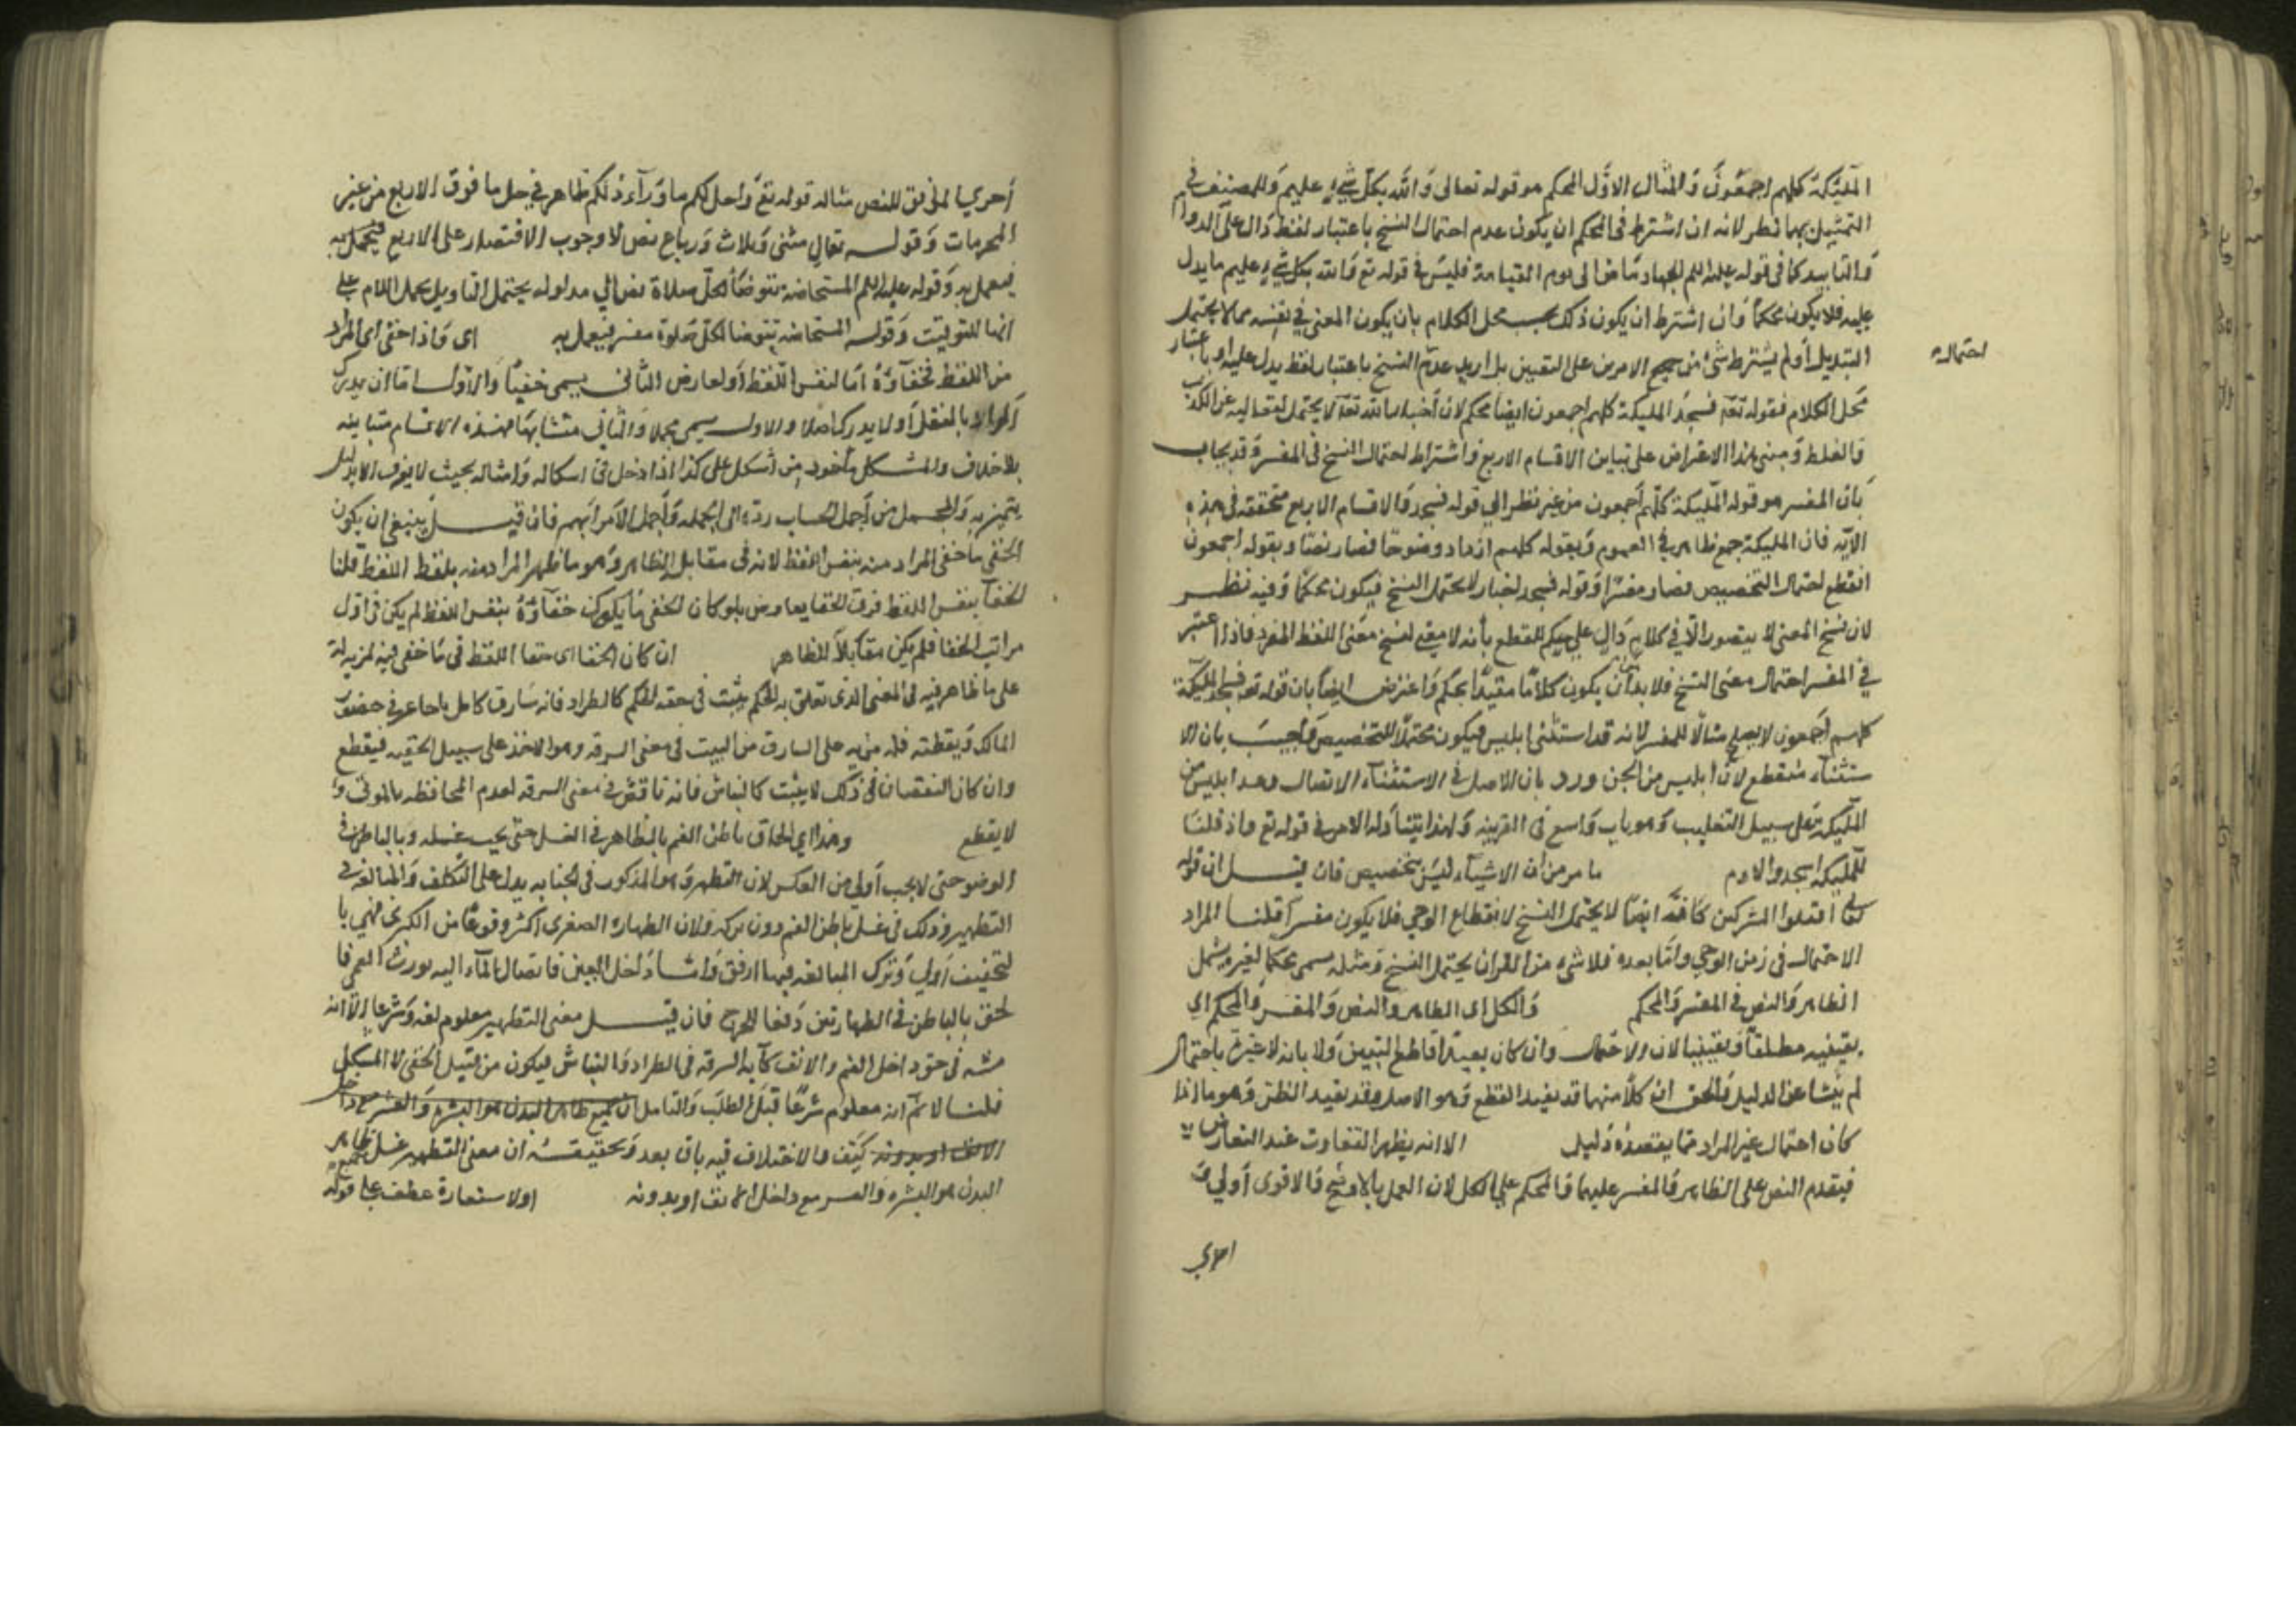 الملئكة كلهم اجمعون والمثال الاول المحكم هو قوله تعالى والله بكل شيء عليم وللمصنف في
التمثيل بهما نظر لانه ان اشترط في المحكم ان يكون عدم احتمال النسخ باعتبار لفظ دال على الدوام
والتابيد كما في قوله عليه السلم الجهاد ماض الى يوم القيامة فليس في قوله تع والله بكل شيء عليم ما يدل
عليه فلا يكون محكما وان اشترط ان يكون ذلك بحسب محل الكلام بان يكون المعنى في نفسه مما لا يحتمل
احتماله
التبديل او لم يشترط شئ من جميع الامرين على التعيين بل اريد عدم النسخ باعتبار لفظ يدل عليه او باعتبار
محل الكلام فقوله تع فسجد المليكة كلهم اجمعون ايضا محكم لان أخبار الله تع لا يحتمل لتعاليه عن الكذب
والغلط ومبنى هذا الاعتراض على تباين الاقسام الاربع واشتراط احتمال النسخ في المفسر وقد يجاب
بان المفسر هو قوله المليكة كلهم أجمعون من غير نظر الى قوله فسجد والاقسام الاربع متحققة في هذه
الآيه فان المليكة جمع ظاهر في العموم وبقوله كلهم ازداد وضوحا فصار نصا وبقوله اجمعون
انقطع احتمال التخصيص فصار مفسرا وقوله فسجد اخبار لا يحتمل النسخ فيكون محكما وفيه نظر
لان نسخ المعنى لا يتصور الا في كلام دال على حكم للقطع بأنه لا معنى لنسخ معنى اللفظ المفرد فاذا اعتبر
في المفسر احتمال معنى النسخ فلا بد أن يكون كلاما مقيدا بحكم واعترض ايضا بان قوله تع فسجد المليكة
كلهم أجمعون لا يصلح مثالا للمفسر لانه قد استثنى ابليس فيكون محتملا للتخصيص وأجيب بان الا
ستثناء منقطع لان ابليس من الجن ورد بان الاصل في الاستثناء الاتصال وعد ابليس من
المليكة على سبيل التغليب وهو باب واسع في العربيه ولهذا يتناوله الامر في قوله تع واذ قلنا
للمليكة اسجدوا لادم ما مر من ان الاشياء ليس بتخصيص فان قيل ان قوله
تعالى اقتلوا المشركين كافة ايضا لا يحتمل النسخ لانقطاع الوحي فلا يكون مفسرا قلنا المراد
الاحتمال في زمن الوحي واما بعده فلا شيء من القران يحتمل النسخ ومثله يسمى محكما لغيره يشمل
الظاهر والنص في المفسر والمحكم والكل اى الظاهر والنص والمفسر والمحكم اي
لم ينشا عن الدليل والحق ان كلا منهما قد يفيد القطع وهو الاصل وقد يفيد الظن وهو ما اذا
كان احتمال غير المراد مما يعتضده دليل الا انه يظهر التفاوت عند التعارض
فيقدم النص على الظاهر والمفسر عليهما والمحكم على الكل لان العمل بالاوضح والاقوى أولى و
احرى
أحرى المحرمات وقوله تعالى مثنى وثلاث ورباع نص لا وجوب الاقتصار على الاربع فيعمل به
فيعمل به وقوله عليه السلم المستحاضة تتوضأ لكل صلاة نص الي مدلوله يحتمل التاويل بحمل اللام على
انها للتوقيت وقوله المستحاضه تتوضا لكل صلوة مفسر فيعمل به اى واذا خفى اى المراد
من اللفظ فخفاؤه اما لنفس اللفظ أو لعارض الثاني يسمى خفيا والاول اما ان يدرك
المراد بالعقل أو لا يدرك اصلا والاول يسمى مجملا والثاني متشابها فهذه الاقسام متباينه
بلا خلاف والمشكل مأخوذ من أشكل على كذا اذا دخل في اشكاله وامثاله بحيث لا يعرف الا بدليل
يتميز به والمجمل من أجمل الحساب رده الى الجمله وأجمل الامر ابهم فان قيل ينبغي ان يكون
الخفى ما خفى المراد منه بنفس اللفظ لانه في مقابل الظاهر وهو ما ظهر المراد منه بلفظ اللفظ قلنا
الخفآ بنفس اللفظ فوق الخفا بعارض فلو كان الخفى ما يكون خفآؤه بنفس اللفظ لم يكن في اول
مراتب الخفا فلم يكن مقابلا للظاهر ان كان الخفا اى خفا اللفظ في ما خفى فيه لمزيه له
على ما ظاهر فيه في المعنى الذى تعلق به الحكم يثبت في حقه الحكم كالطرار فانه سارق كامل ياخذ في حضور
المالك ويقظته فله مزيه على السارق من البيت في معنى السرقه وهو الاخذ على سبيل الخفيه فيقطع
وان كان النقصان في ذلك لا يثبت كالنباش فانه ناقص في معنى السرقه لعدم المحافظه بالموتى و
لا يقطع وهذا اي الحاق باطن الفم بالظاهر في الغسل حتى يجب غسله وبالباطن في
الوضو حتى لا يجب أولى من العكس لان التطهر وهو المذكور في الجنابه يدل على التكلف والمبالغه في
التطهير وذلك في غسل باطن الفم دون تركه ولان الطهاره الصغرى اكثر وقوعا من الكبرى فهي با
لتخفيف أولى وترك المبالغه فيها ارفق واما داخل العين فايصال المآء اليه يورث العمى فا
لحق بالباطن في الطهارتين دفعا للحرج فان قيل معنى التطهير معلوم لغه وشرعا الا انه
مشتبه في حق داخل الفم والانف كآيه السرقه في الطرار والنباش فيكون من قبيل الخفى لا المشكل
قلنا لا ثم انه معلوم شرعا قبل الطلب والتامل
كيف والاختلاف فيه باق بعد وتحقيقه ان معنى التطهير غسل جميع ظاهر
البدن هو البشره والشعر مع داخل الانف او بدونه اولاستعارة عطف على قوله